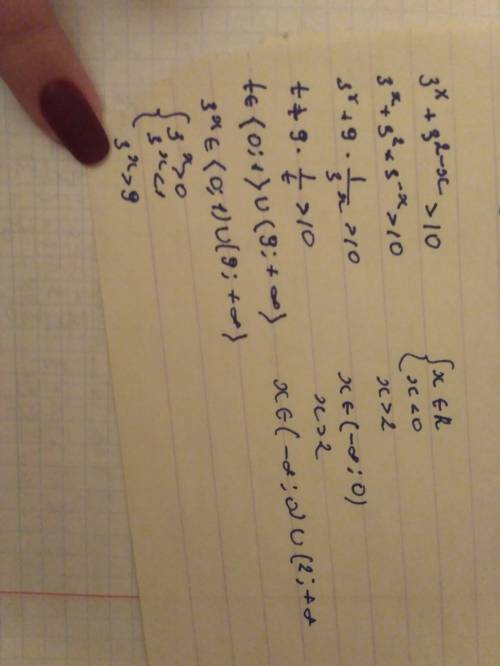 3^x + 3^{2-x} > 10
3^x + 3^2 × 3^{-x} > 10
3^x + 9 · 1/3^x > 10
t + 9 · 1/t > 10
t ∈ (0; 1) ∪ (9; +∞)
3^x ∈ (0; 1) ∪ (9; +∞)
{ 3^x > 0
3^x < 1
3^x > 9
{ x ∈ R
x < 0
x > 2
x ∈ (-∞; 0)
x > 2
x ∈ (-∞; 0) ∪ (2; +∞